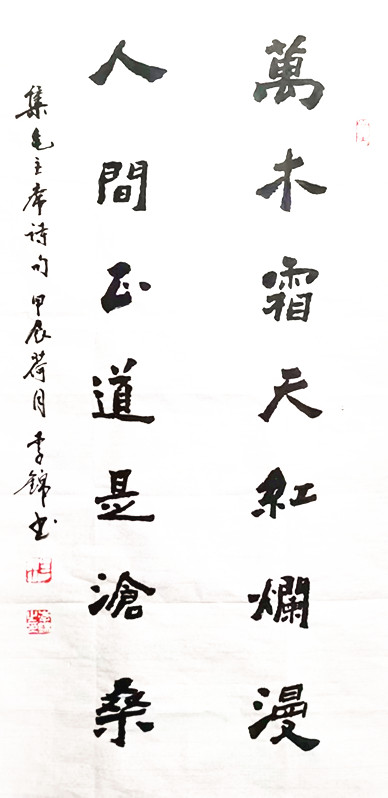 萬木霜天紅爛漫
人間正道是滄桑
集毛主席詩句 甲辰荷月 李錦书